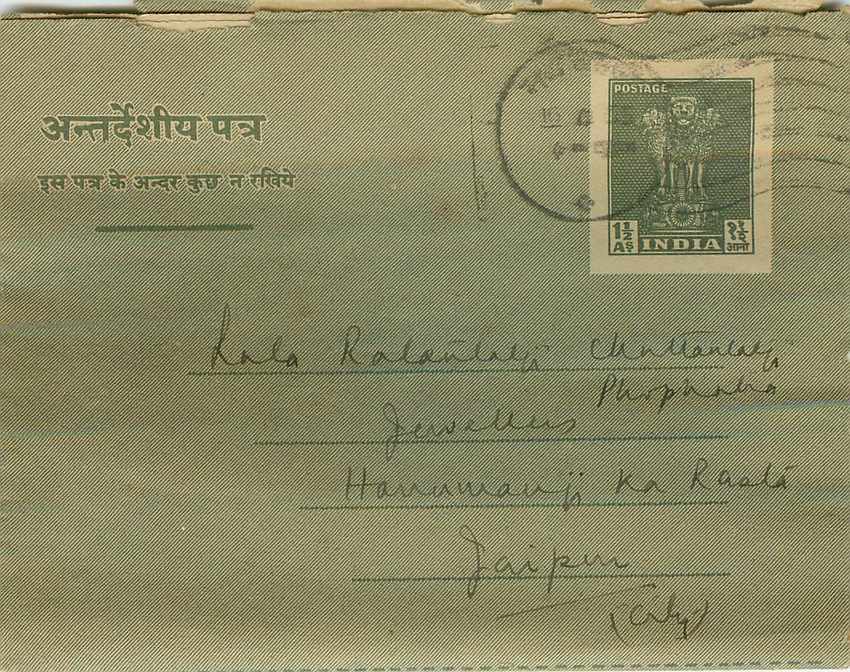 अन्तर्देशीय पत्र
इस पत्र के अन्दर कुछ न रखिये
POSTAGE
1½ As. INDIA १½ आना
Lala Ratanlalji Chuttanlalji
Phophalia
Jewellers
Hanumanji Ka Rasta
Jaipur
(City)